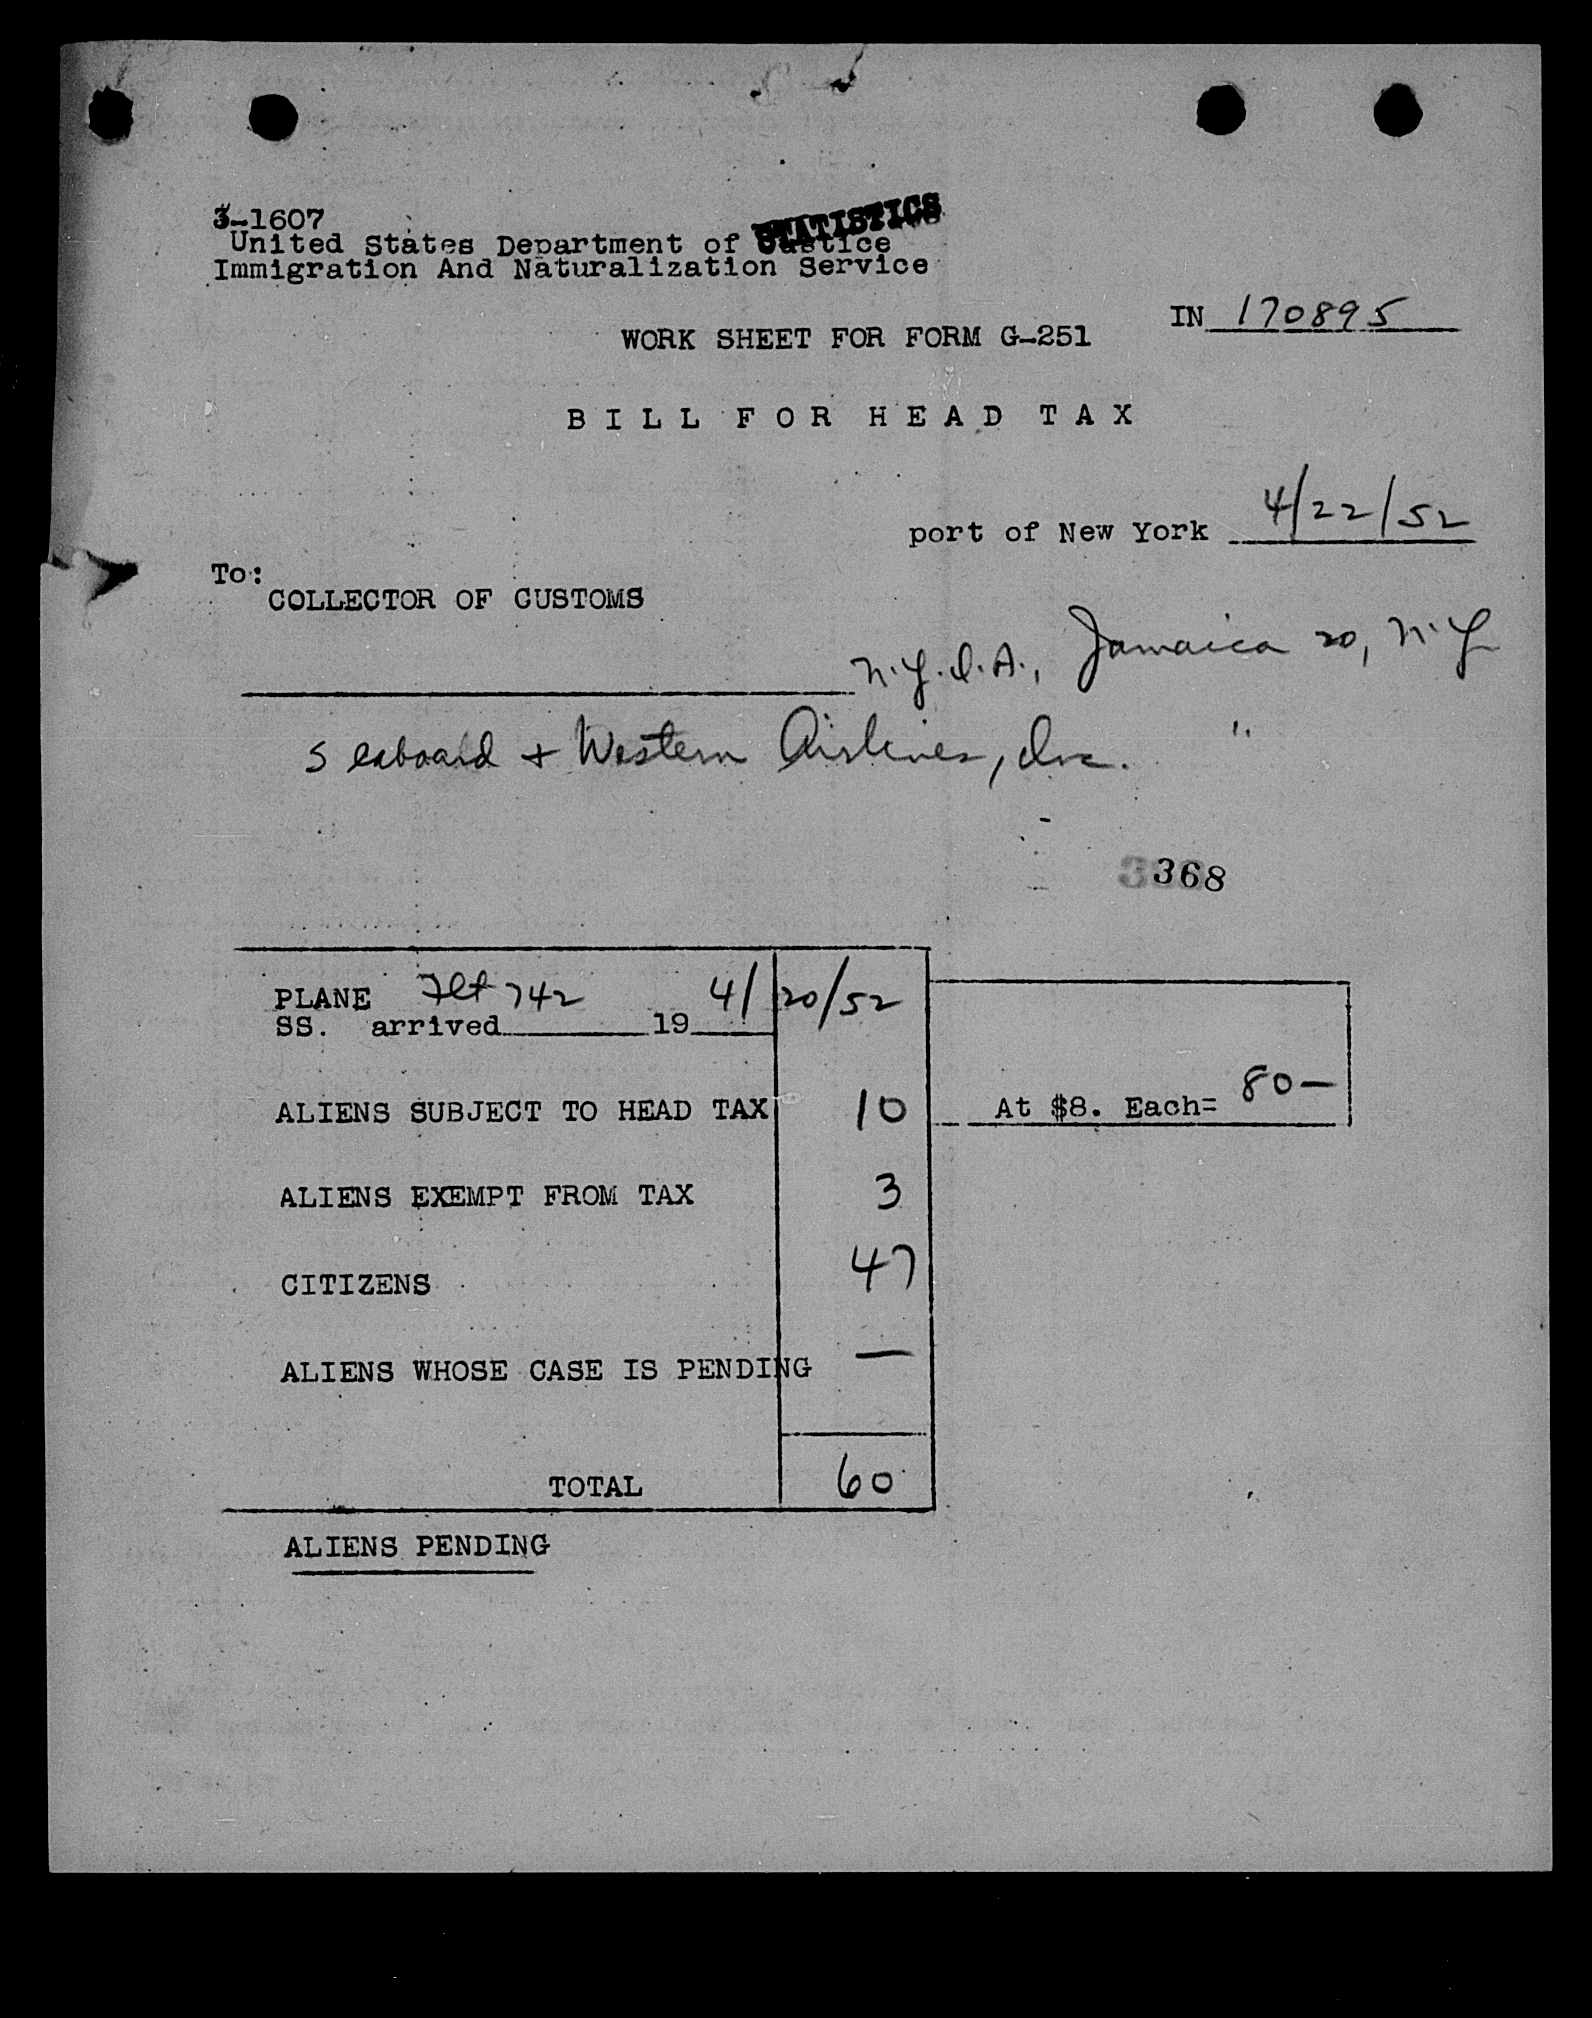 STATISTICS
3-1607
United States Department of Justice
Immigration And Naturalization Service
IN 170895
WORK SHEET FOR FORM G-251
BILL FOR HEAD TAX
port of New York 4/22/52
To:
COLLECTOR OF CUSTOMS
N.Y.I.A., Jamaica 20, N.Y
Seaboard + Western Airlines, Inc. "
3368
PLANE Flt 742 4/20/52
SS. arrived 19
ALIENS SUBJECT TO HEAD TAX 10 At $8. Each= 80—
ALIENS EXEMPT FROM TAX 3
CITIZENS 47
ALIENS WHOSE CASE IS PENDING —
TOTAL 60
ALIENS PENDING